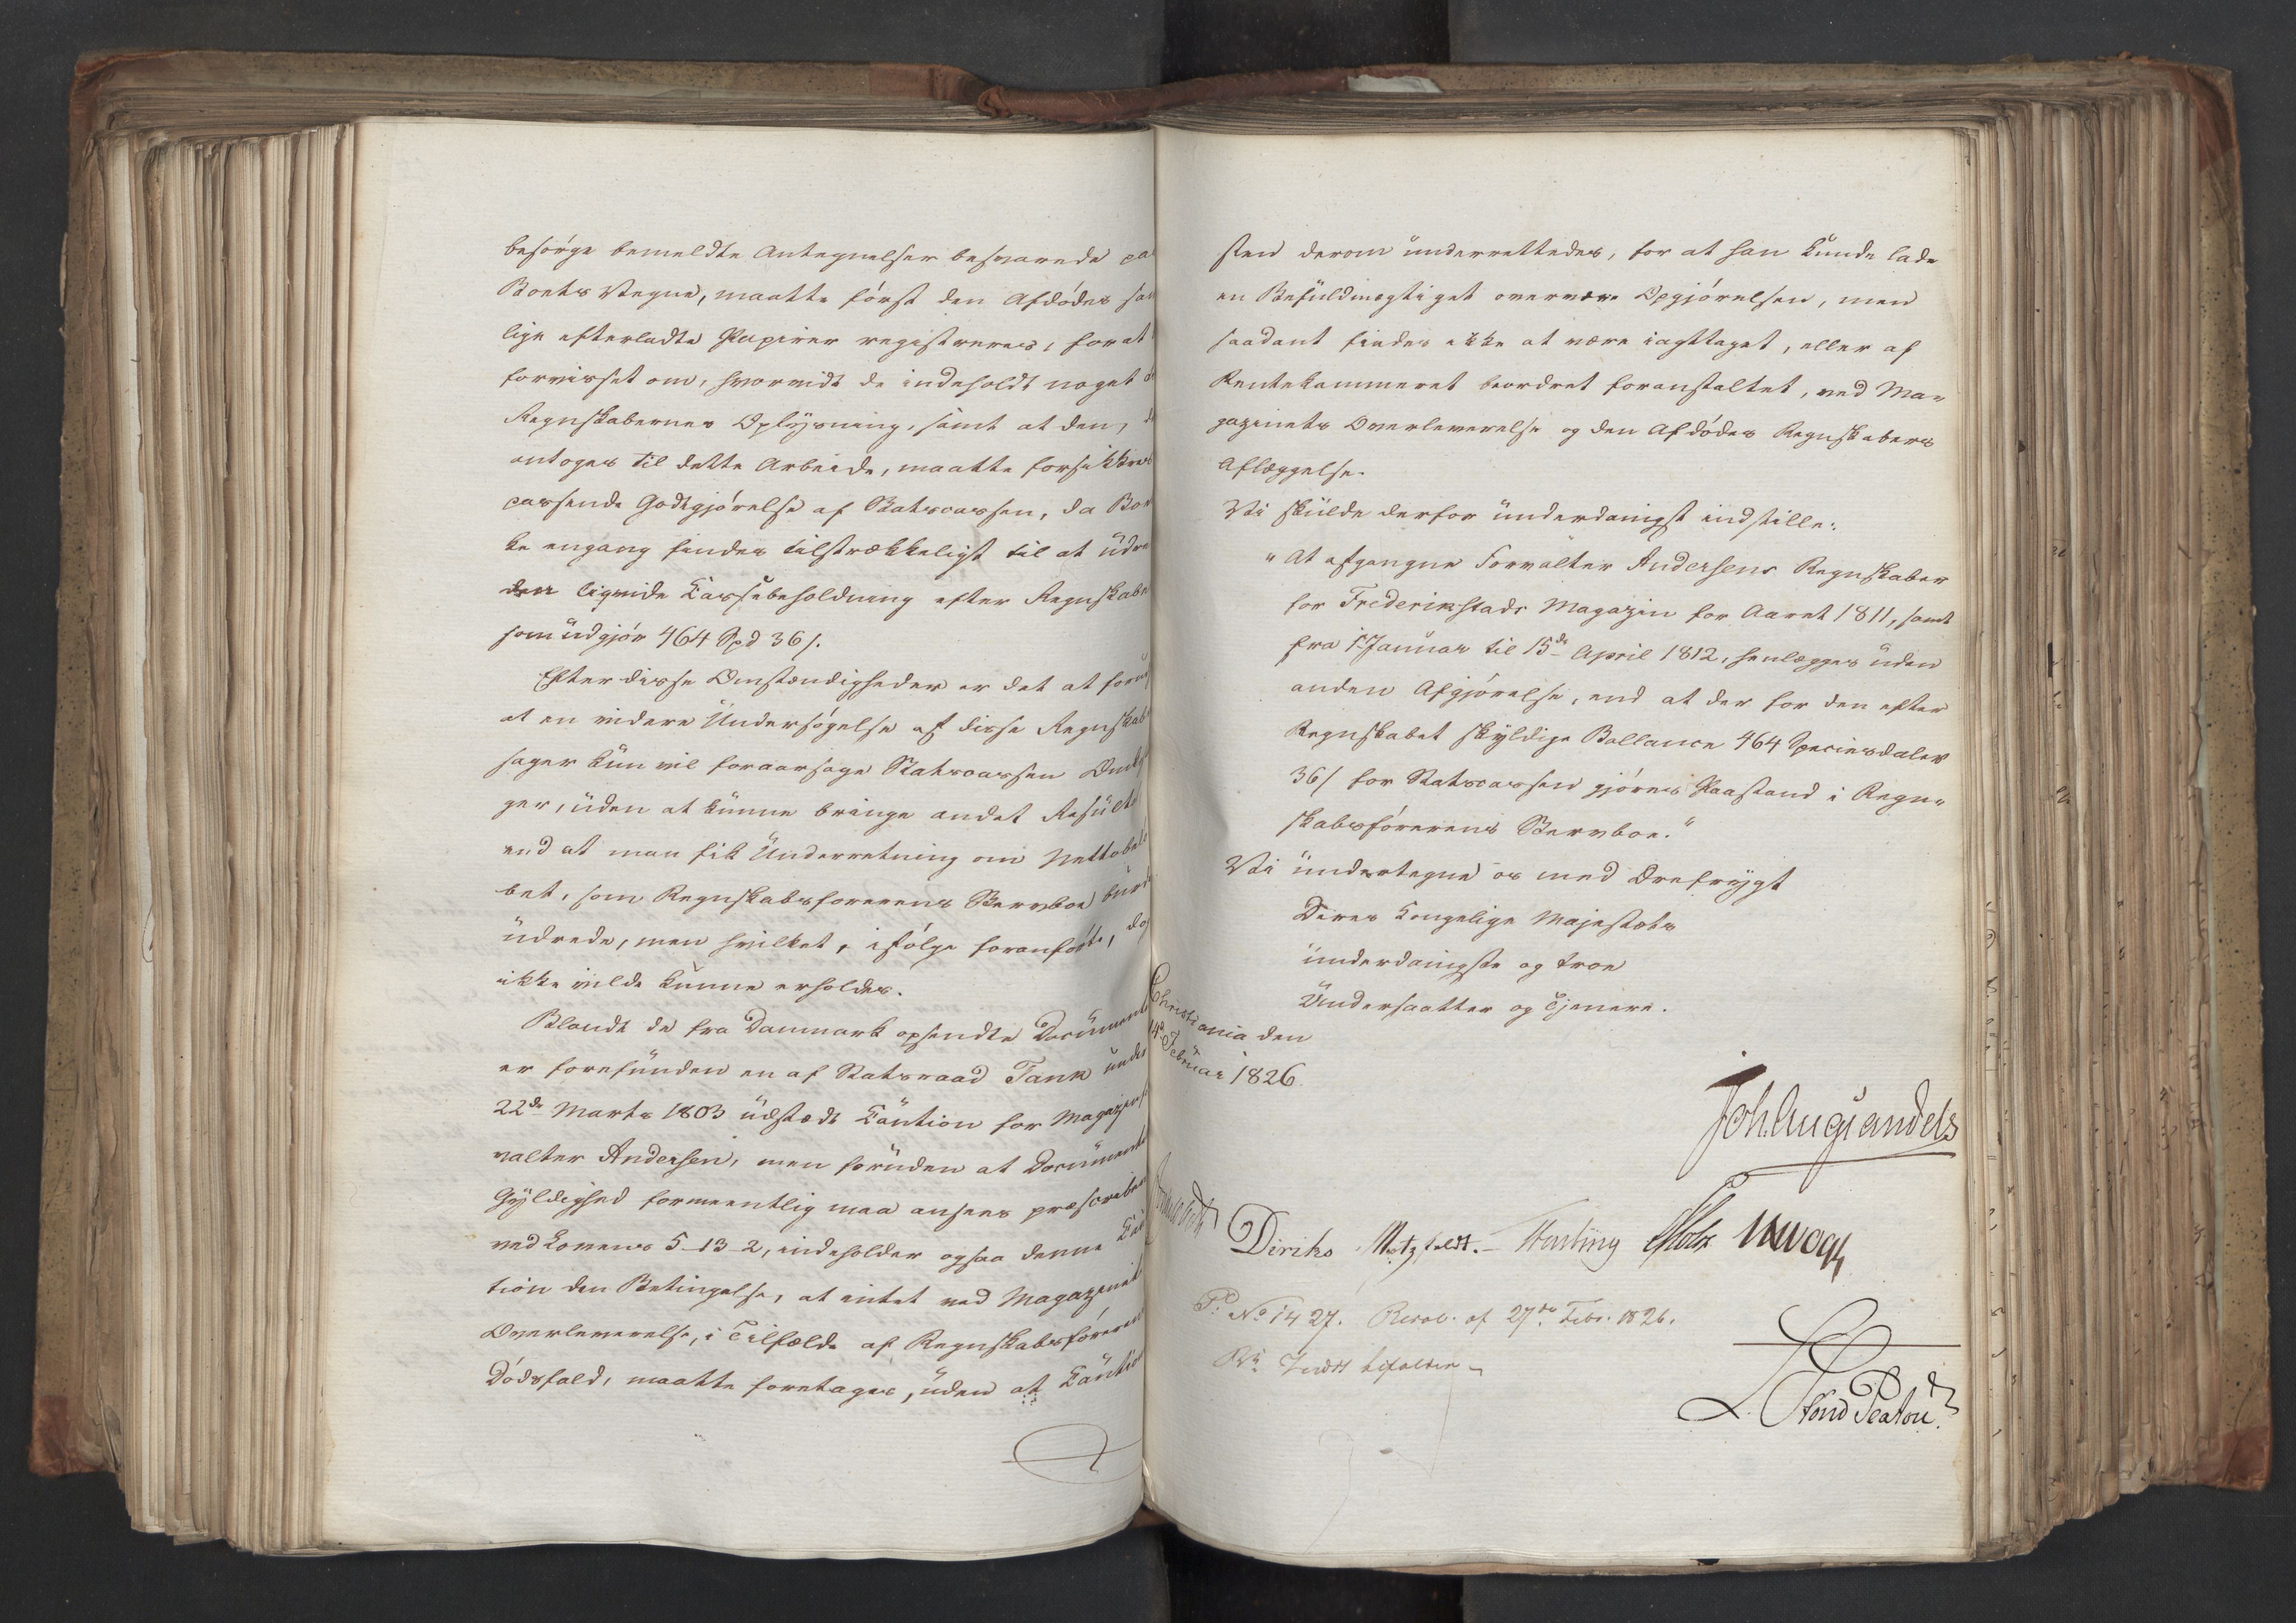 besørge bemeldte Antegnelser besvarede paa
Boets Vegne, maatte først den Afdødes sam
lige efterladte Papirer registreres, for at
forvisset om, hvorvidt de indeholdt noget
Regnskabernes Oplysning, samt at den,
antoges til dette Arbeide, maatte forsikkres
passende Godtgjørelse af Statscassen, da Boe
ke engang findes tilstrækkeligst til at udre
den liqvide Cassebeholdning efter Regnskabe
som udgjør 464 Spd 36 ſ.
Efter disse Omstændigheder er det at foruds
at en videre Undersøgelse af disse Regnskabs
sager kun vil foraarsage Statscassen Omkost
ger, uden at kunne bringe andet Resultat
end at man fik Underretning om Nettobelø
bet, som Regnskabsførerens Stervboe burde
udrede, men hvilket, ifølge foranførte, dog
ikke vilde kunne erholdes.
Blandt de fra Danmark opsendte Documente
er forefunden en af Statsraad Tank under
22de Marts 1803 udstædt Caution for Magazinfor
valter Andersen, men foruden at Documentets
Gyldighed formeentlig maa ansees præscriberet
ved Lovens 5-13-2, indeholder ogsaa denne Cau
tion den Betingelse, at intet ved Magazinets
Overleverelse, i Tilfælde af Regnskabsførerens
Dødsfald, maatte foretages, uden at Cautio
sten derom underrettedes, for at han kunde lade
en Befuldmægtiget overvære Opgjørelsen, men
saadant findes ikke at være iagttaget, eller af
Rentekammeret beordret foranstaltet, ved Ma-
gazinets Overleverelse og den Afdødes Regnskabers
Aflæggelse.
Vi skulde derfor underdanigst indstille:
"At afgangne Forvalter Andersens Regnskaber
for Frederikstads Magazin for Aaret 1811, samt
fra 1 Januar til 15de April 1812, henlægges uden
anden Afgjørelse, end at der for den efter
Regnskabet skyldige Ballance 464 Speciesdaler
36 ſ for Statscassen gjøres Paastand i Regn-
skabsførerens Stervboe."
Vi undertegne os med Ærefrygt
Deres Kongelige Majestæts
underdanigste og troe
Undersaatter og Tjenere.
Christiania den
14de Februar 1826
Joh. Aug. Sandels
Diriks Motzfeldt. Fasting Holst
P: No 1427. Resol. af 27de Febr. 1826.